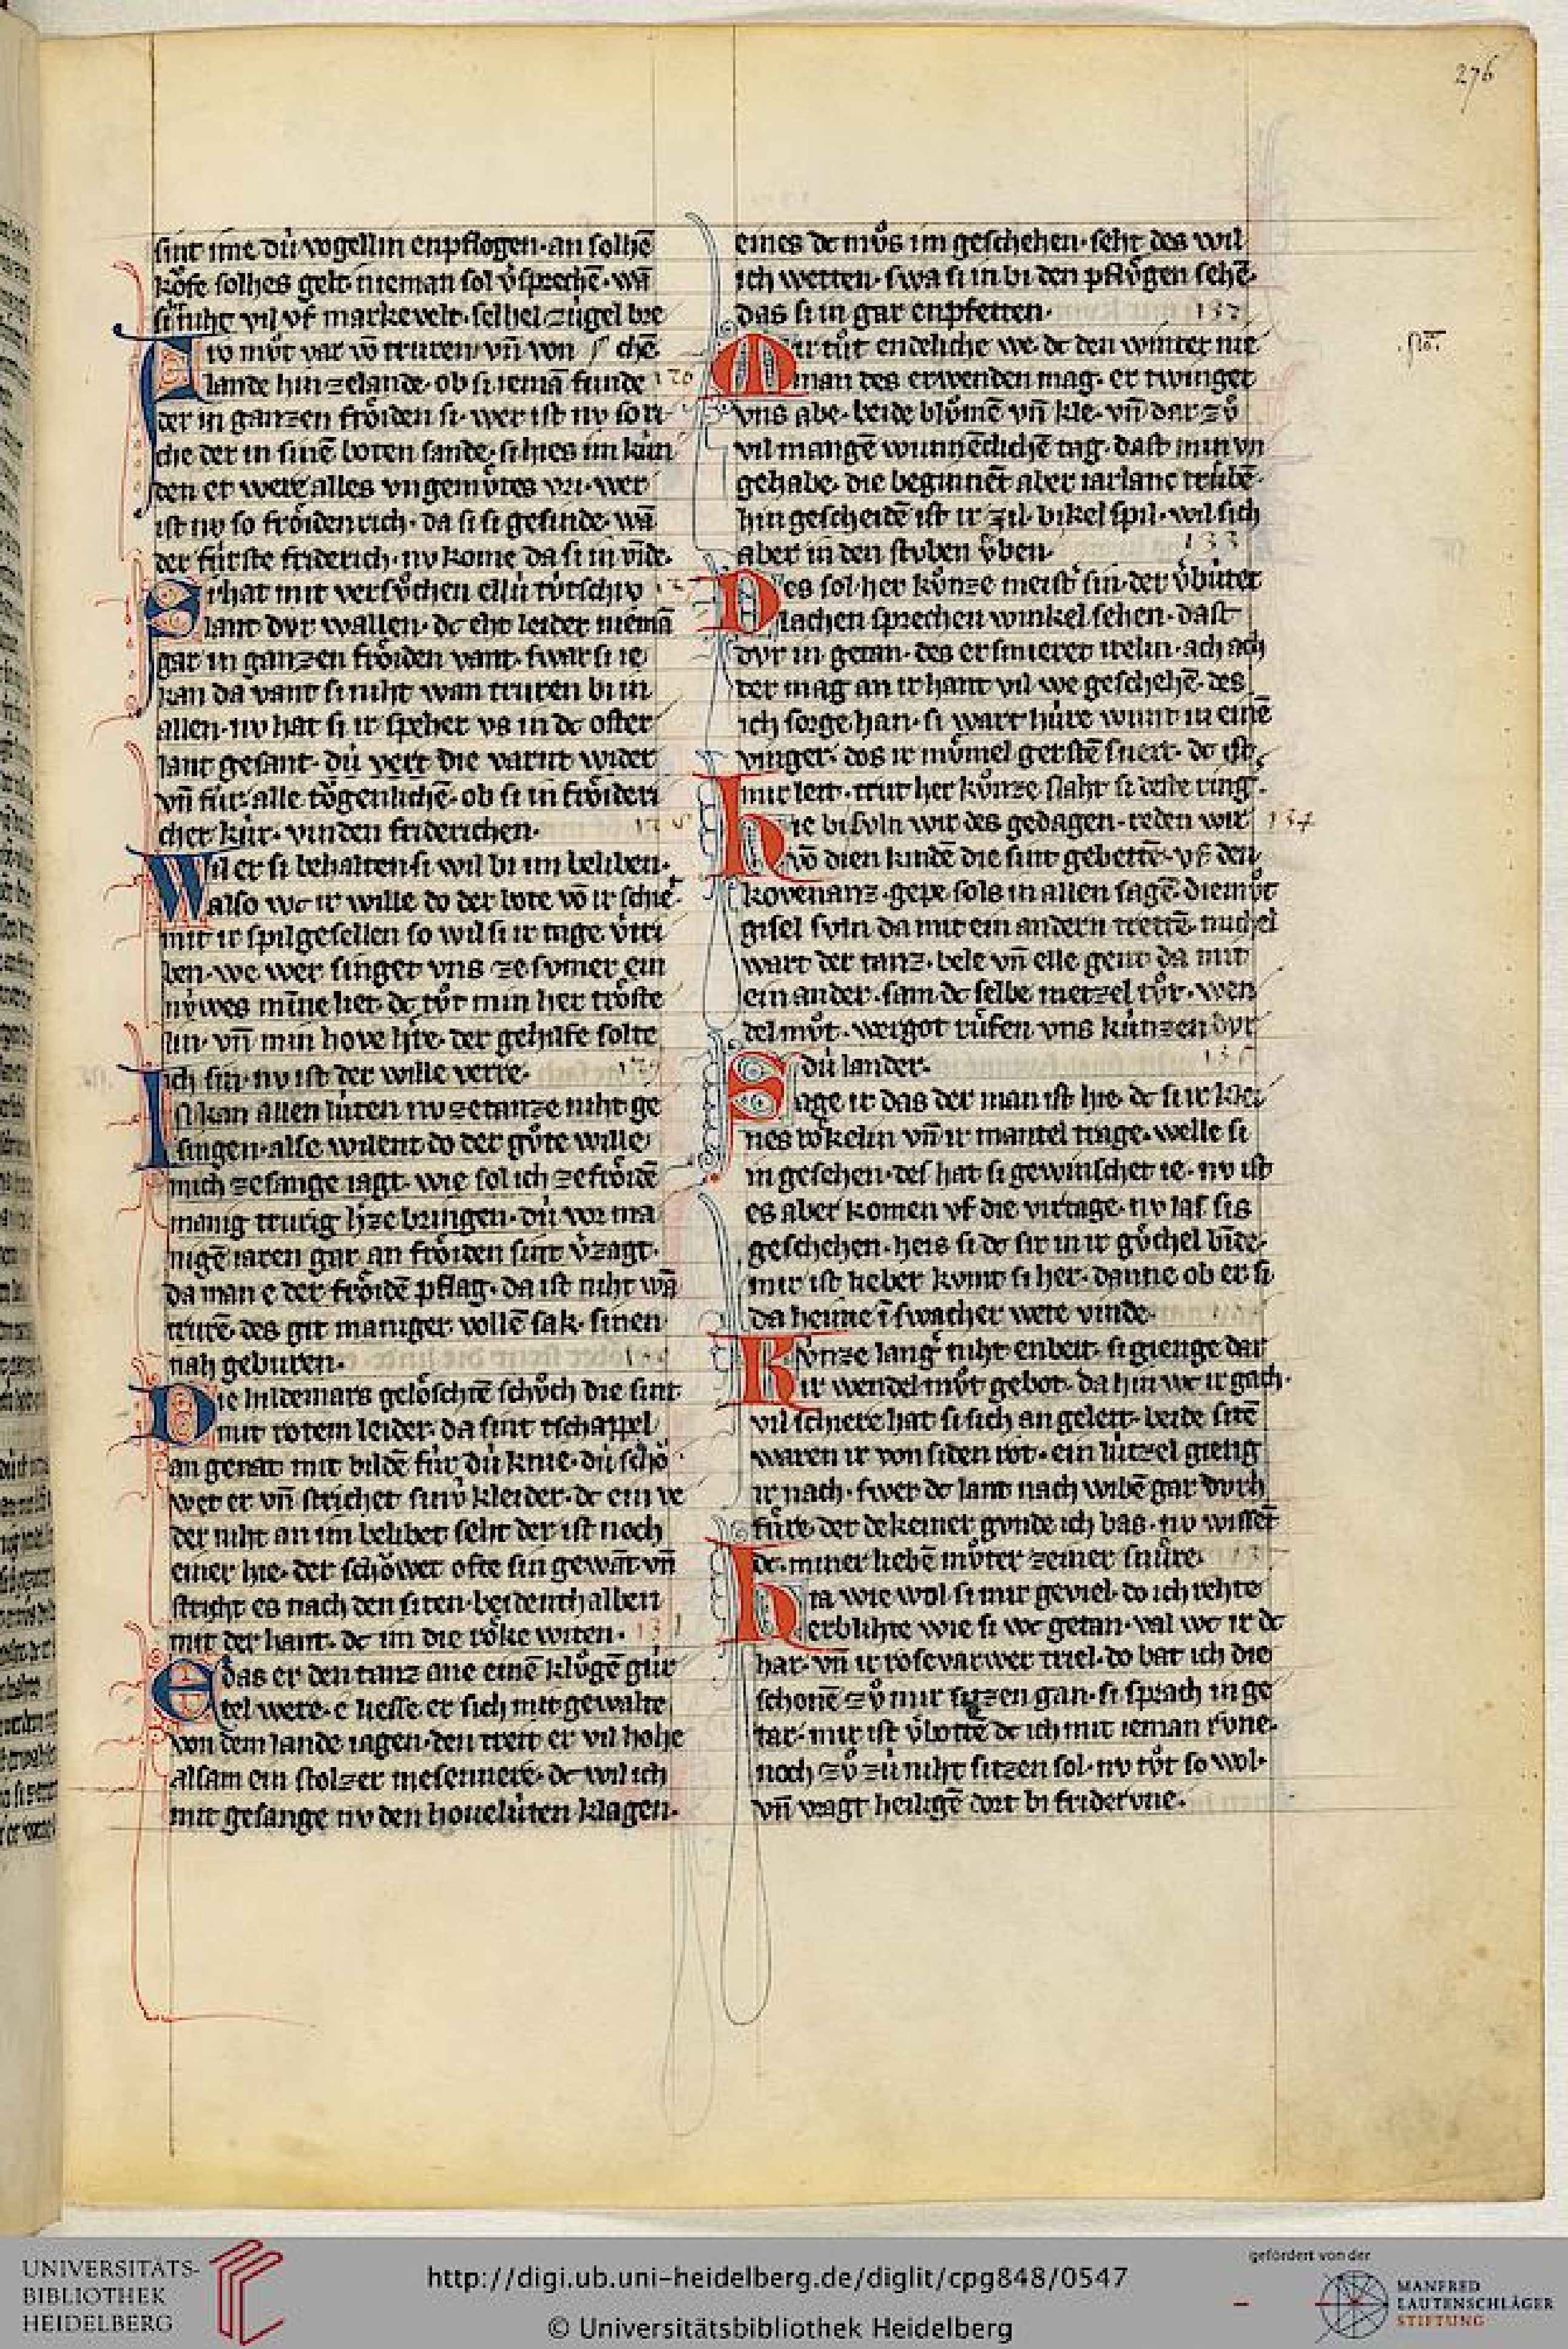 276
sint ime dú vogellin enpflogen·an solhē
kŏfe solhes gelt·nieman sol v̊sprechē·wā
si niht vil vf markevelt·selhel zúgel bre
Fro mvͦt var vō truren vn̄ von chē·
lande hin zelande·ob si iemā funde 126
der in ganzen frŏiden si·wer ist nv so ri
che der in sinē boten sande·si hies im kún
den er were alles vngemvͦtes vri·wer
ist nv so frŏidenrich·da si si gesinde·wā
der fúrste friderich·nv kome da si in vinde·
Si hat mit versvͦchen ellú tútschv
lant dvr wallen·dc eht leider niemā
gar in ganzen frŏiden vant·swar si ie
kan da vant si niht wan truren bi in
allen·nv hat si ir speher vs in dc oster
lant gesant·dú vert die varnt wider
vn̄ fúr alle tŏgenlichē·ob si in frŏideri
cher kúr·vinden friderichen·
Wil er si behalten si wil bi im beliben·
also wc ir wille do der bote vō ir schiet
mit ir spilgesellen so wil si ir tage v̊tri
ben·we wer singet vns ze svmer ein
núwes mīne liet·dc tvͦt min her trŏste
lin·vn̄ min hove hre·der gehilfe solte
ich sin·nv ist der wille verre·
Ich kan allen lúten nv zetanze niht ge
singen·alse wilent do der gvͦte wille
mich zesange iagt·wie sol ich zefrŏidē
manig trurig hze bringen·dú vor ma
nigē iaren gar an frŏiden sint v̊zagt·
da man e der frŏidē pflag·da ist niht wā
trurē·des git maniger vollē sak·sinen
nah geburen·
Die hildemars gelŏschtē schvͦch die sint
mit rotem leider·da sint tschappel
an genat mit bildē fúr dú knie·dú schŏ
wet er vn̄ strichet sinú kleider·dc ein ve
der niht an im belibet seht der ist noch
einer hie·der schŏwet ofte sin gewāt·vn̄
stricht es nach den siten·beidenthalben
mit der hant·dc im die rŏke witen· 131
E das er den tanz ane einē klvͦgē gúr
tel were·e liesse er sich mit gewalte
von dem lande iagen·den trett er vil hohe
alsam ein stolzer mesennere·dc wil ich
mit gesange nv den hovelúten klagen·
eines dc mvͦs im geschehen·seht des wil
ich wetten·swa si in bi den pflvͦgen sehē·
das si in gar enpfetten· 132
Mir tvͦt endeliche we·dc den winter nie
man des erwenden mag·er twinget
vns abe·beide blvͦmē vn̄ kle·vn̄ dar zvͦ
vil mangē wunneclichē tag·dast min vn
gehabe·die beginnēt aber iarlanc trúbē·
hin gescheidē ist ir zil·bikel spil·wil sich
aber in den stvben vͤben· 133
Des sol her kvͦnze meist̓ sin·der v̊bútet
lachen sprechen winkel sehen·dast
dvr in getan·des er smieret itelin·ach ach
ter mag an ir hant vil we geschehē·des
ich sorge han·si wart húre wunt in einē
vinger·dos ir mvͦmel gerstē sneit·dc ist
mir leit·trut her kvͦnze slaht si deste ring̓·
Hie bi svln wir des gedagen·reden wir 134
vō dien kindē die sint gebettē·vf den
kovenanz·gepe sols in allen sagē·diemvͦt
gisel svln da mit ein andern trettē·michel
wart der tanz·bele vn̄ elle gent da mit
ein ander·sam dc selbe metzel tvͦt·wen
delmvͦt·wergot rúfen vns kúnzen dvr
dú lander· 135
Sage ir das der man ist hie·dc si ir klei
nes rŏkelin vn̄ ir mantel trage·welle si
in gesehen·des hat si gewúnschet ie·nv ist
es aber komen vf die virtage·nv las sis
geschehen·heis si dc sir in ir gvͦchel binde·
mir ist lieber komt si her·danne ob er si
da heime ī swacher wete vinde·
Kvͦnze lang̓ niht enbeit·si gienge dar
ir wendelmvͦt gebot·da hin wc ir gach·
vil schiere hat si sich angeleit·beide sitē
waren ir von siden rot·ein lútzel gieng
ir nach·swer dc lant nach wibē gar dvrh
fúre·der dekeiner gvnde ich bas·nv wissēt
dc·miner liebē mvͦter zeiner snúre·
Hia wie wol si mir geviel·do ich rehte
erblihte wie si wc getan·val wc ir dc
har·vn̄ ir rosevarwer triel·do bat ich die
schonē zvͦ mir sitzen gan·si sprach in ge
tar·mir ist v̊bottē dc ich mit ieman rvne·
noch zvͦ zú niht sitzen sol·nv tvͦt so wol·
vn̄ vragt heiligē dort bi fridervne·
UNIVERSITÄTS-
BIBLIOTHEK
HEIDELBERG
http://digi.ub.uni-heidelberg.de/diglit/cpg848/0547
© Universitätsbibliothek Heidelberg
gefördert von der
MANFRED
LAUTENSCHLÄGER
STIFTUNG